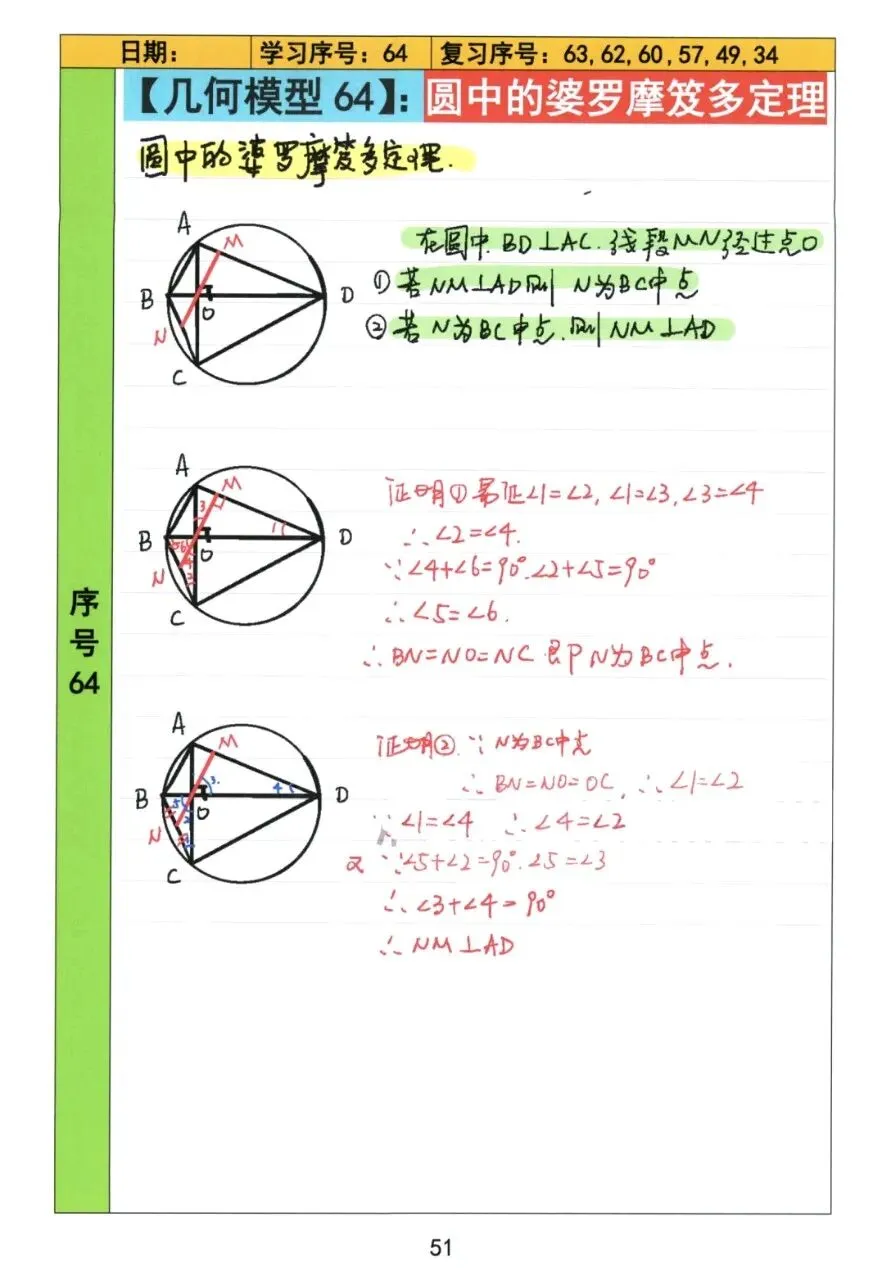 日期： 学习序号：64 复习序号：63,62,60,57,49,34
【几何模型 64】：圆中的婆罗摩笈多定理
圆中的婆罗摩笈多定理.
A
M
B
O
D
N
C
在圆中.BD⊥AC.线段MN经过点O
①若NM⊥AD则 N为BC中点
②若N为BC中点.则NM⊥AD
A
M
3
B
1
O
D
5
6
4
N
2
C
证明① 易证∠1=∠2,∠1=∠3,∠3=∠4
∴∠2=∠4.
∵∠4+∠6=90°.∠2+∠5=90°
∴∠5=∠6.
∴BN=NO=NC 即N为BC中点.
序号64
A
M
3
4
B
5
O
D
2
N
1
C
证明②.∵N为BC中点
∴BN=NO=OC,∴∠1=∠2
∵∠1=∠4 ∴∠4=∠2
又∵∠5+∠2=90°.∠5=∠3
∴∠3+∠4=90°
∴NM⊥AD
51